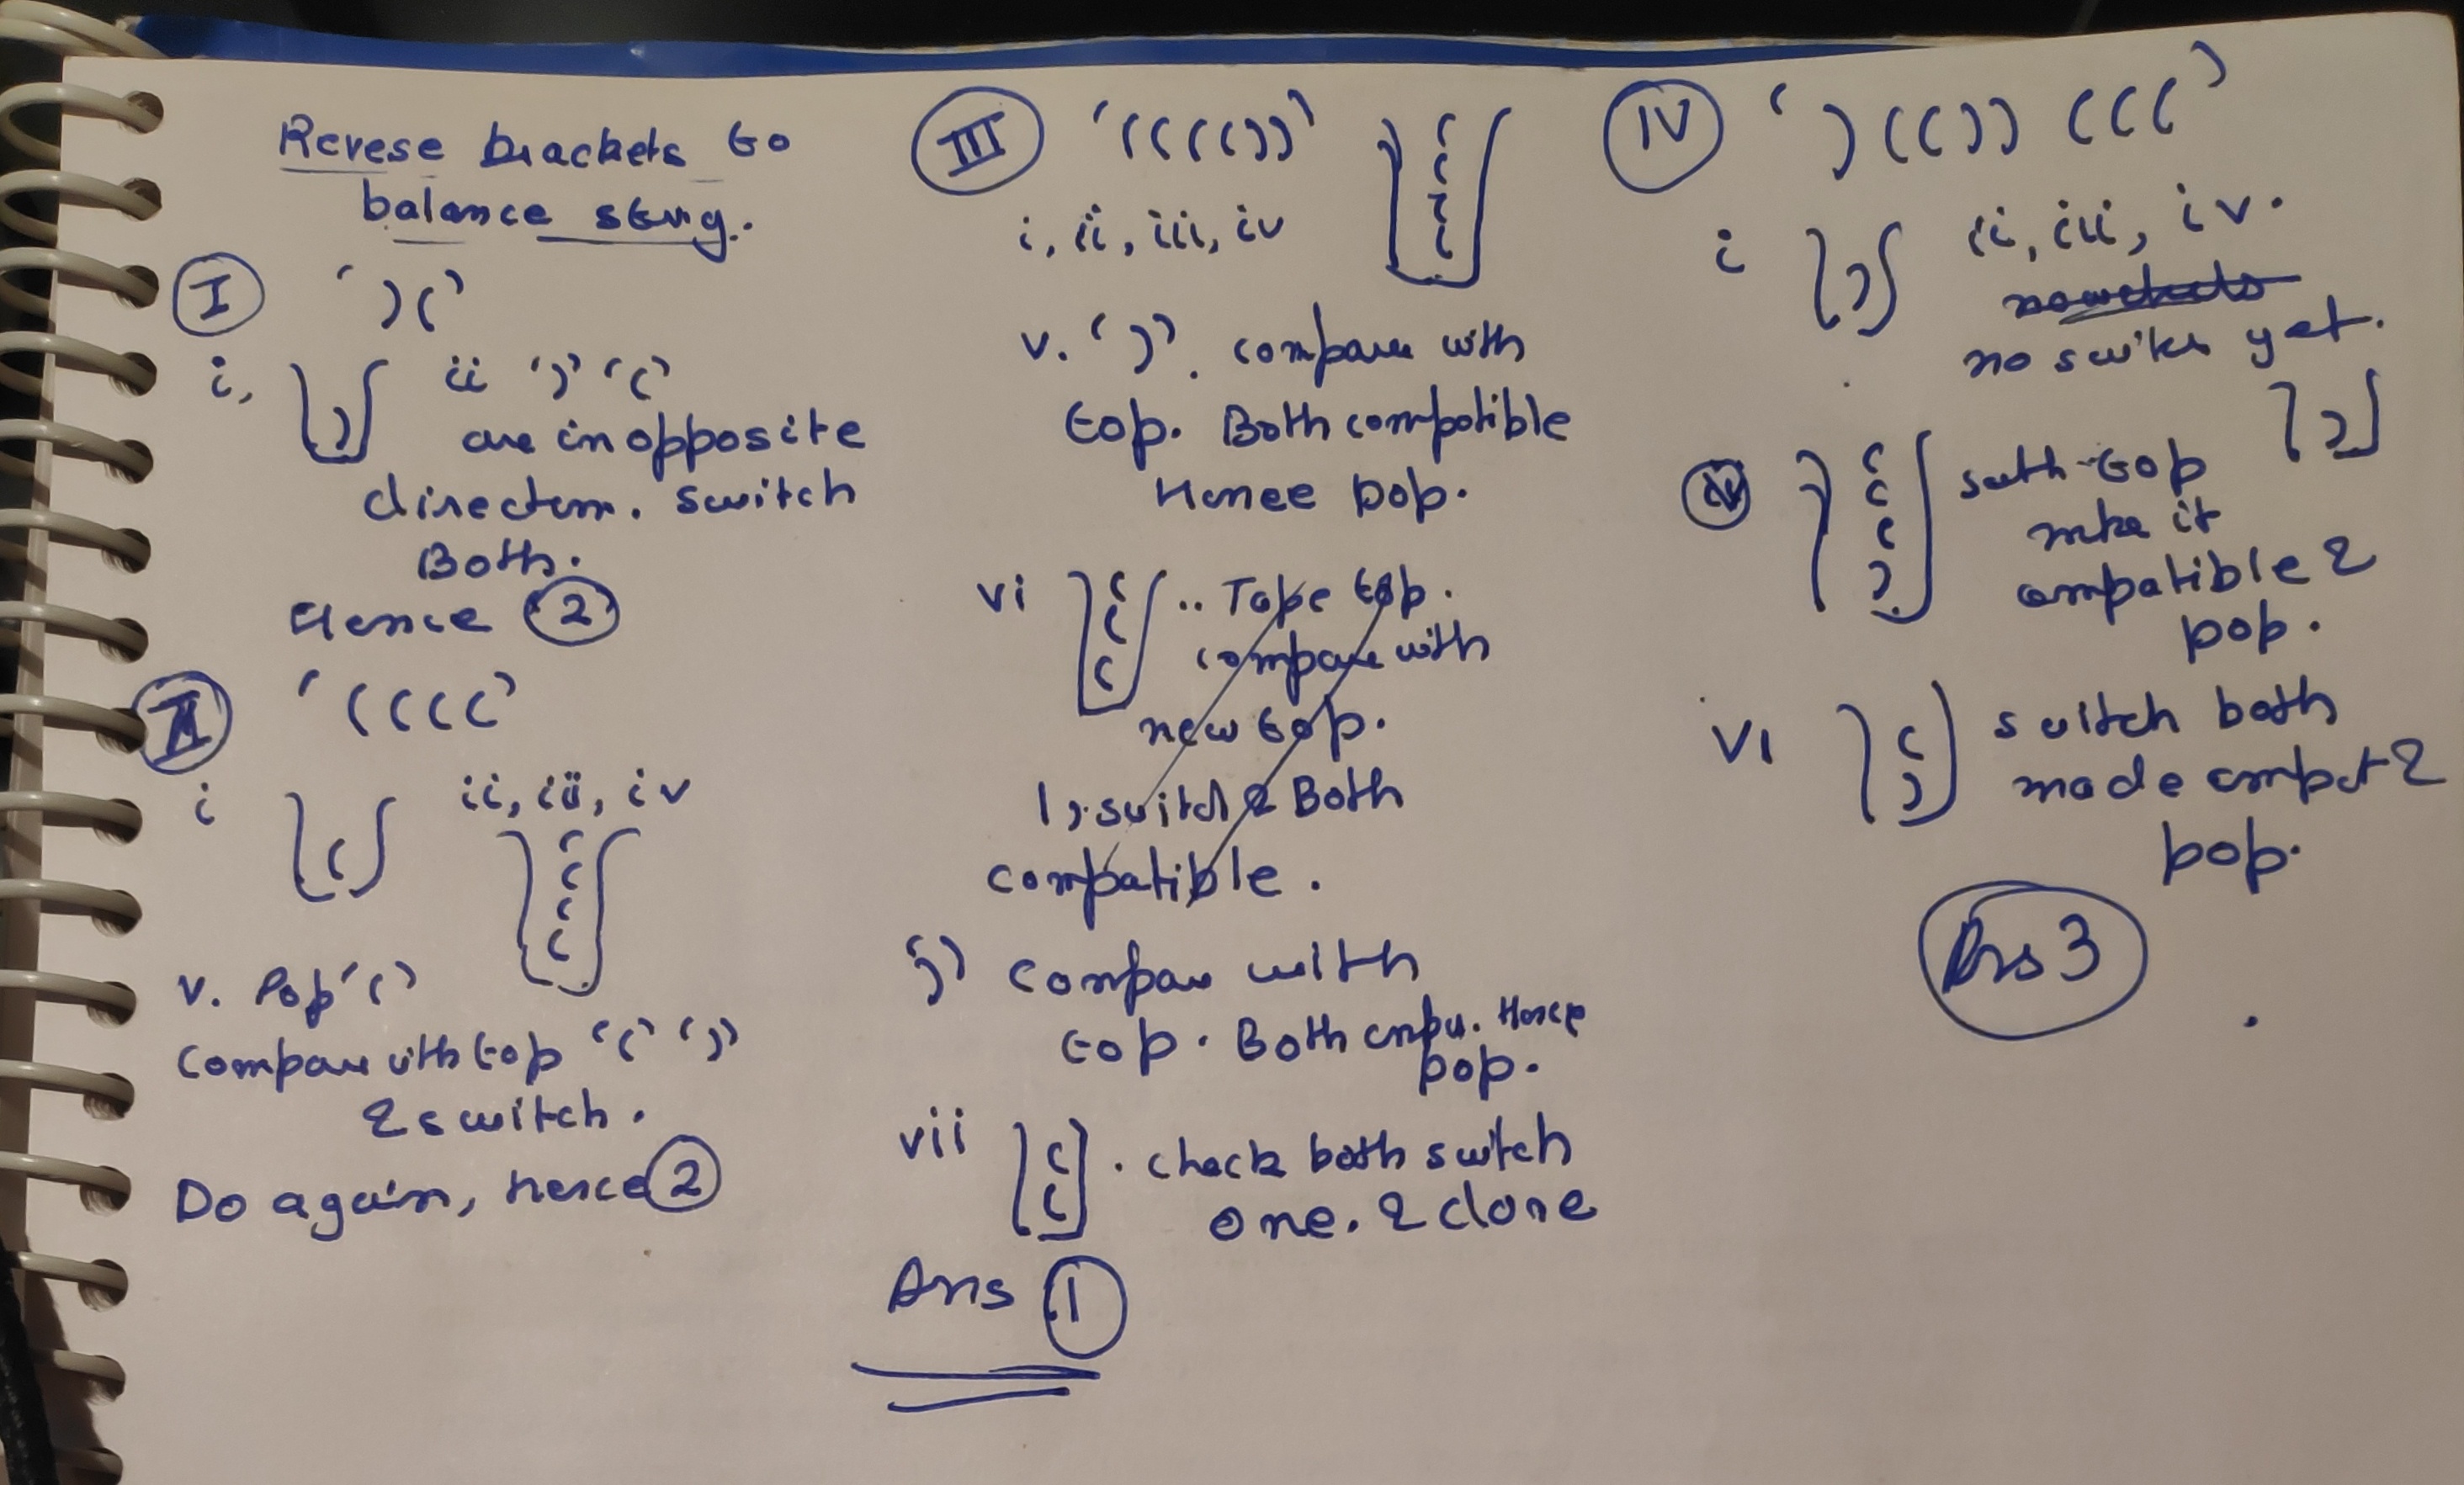 Revese brackets to
balance string.
I ')('
i, ) ii ')' '('
are in opposite
direction. switch
Both.
Hence 2
II '(((('
i ( ii, iii, iv
(
(
(
(
v. Pop '('
Compare with top '(' ')'
& switch.
Do again, hence 2
III '(((())'
i, ii, iii, iv
(
(
(
(
v. ')'. compare with
top. Both compatible
Hence pop.
vi (
(
(
.. Take top.
compare with
new top.
1). switch & Both
compatible.
')' Compare with
top. Both Hence
pop.
vii (
(
. check both switch
one. & done
Ans 1
IV ')(()) ((('
i ) ii, iii, iv.
no yet.
)
(
(
(
)
top
make it
compatible &
pop.
VI (
)
switch both
made &
pop.
Ans 3